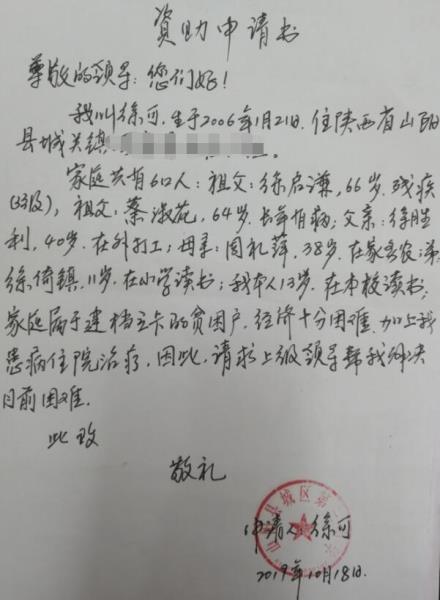 资助申请书
尊敬的领导:您们好!
我叫徐可,生于2006年1月21日.住陕西省山阳
县城关镇
家庭共有6口人:祖父:徐启谦,66岁.残疾
(3级),祖父:蔡淑苑,64岁.长年有病;父亲:徐胜
利,40岁.在外打工;母亲:周礼萍,38岁.在家务农;弟
徐倚镇.11岁.在小学读书;我本人13岁.在本校读书.
家庭属于建档立卡的贫困户,经济十分困难.加上我
患病住院治疗,因此,请求上级领导帮我解决
目前困难.
此致
敬礼
县城区第
申请人:徐可
2019年10月18日.